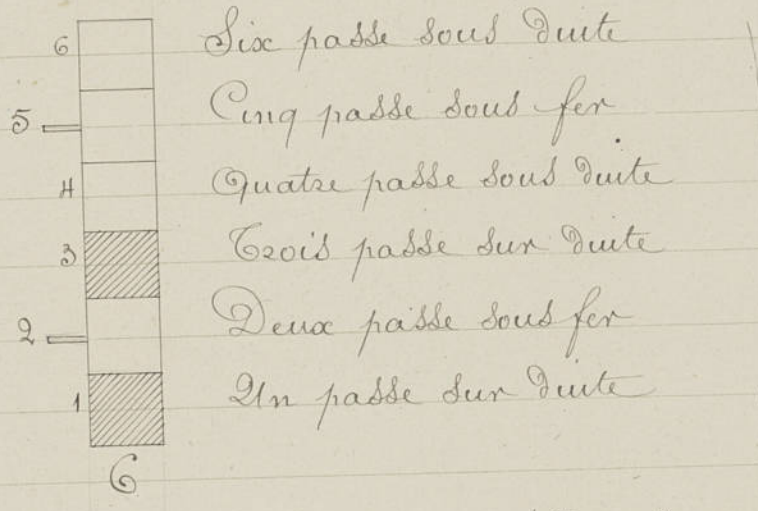 6 Six passe sous duite
5 Cinq passe sous fer
4 Quatre passe sous duite
3 Trois passe sur duite
2 Deux passe sous fer
1 Un passe sur duite
6